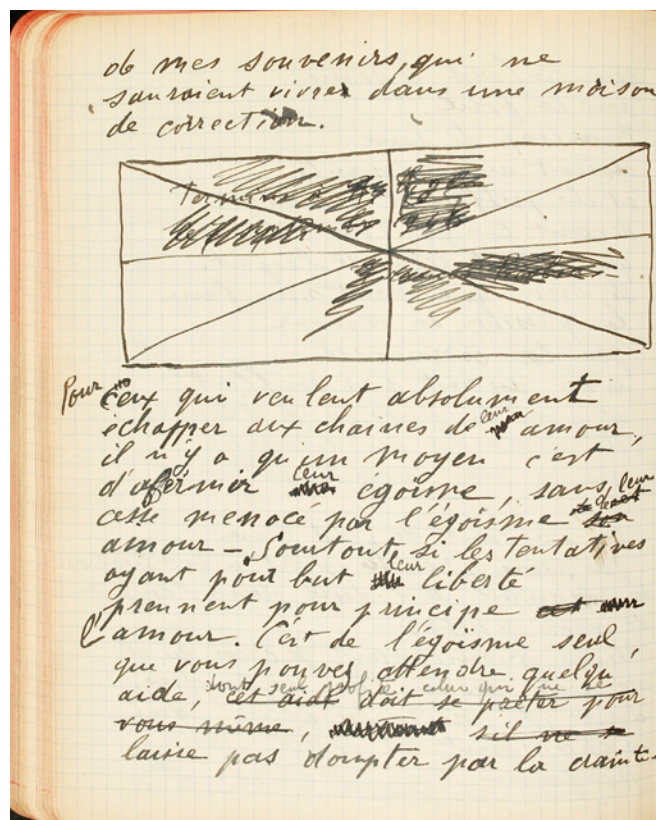 de mes souvenirs, qui ne
sauraient vivre dans une maison
de correction.
Terminus
Pour ceux qui veulent absolument
échapper aux chaines de leur amour,
il n'y a qu'un moyen c'est
d'afermir leur égoïsme, sans
cesse menacé par l'égoïsme de leur
amour – Sourtout, si les tentatives
ayant pour but leur liberté
prennent pour principe
l'amour. C'est de l'égoïsme seul
que vous pouvez attendre quelqu'
aide, dont seul celui qui ne se
cet aide doit se prêter pour
vous même, s'il ne se
laisse pas dompter par la crainte